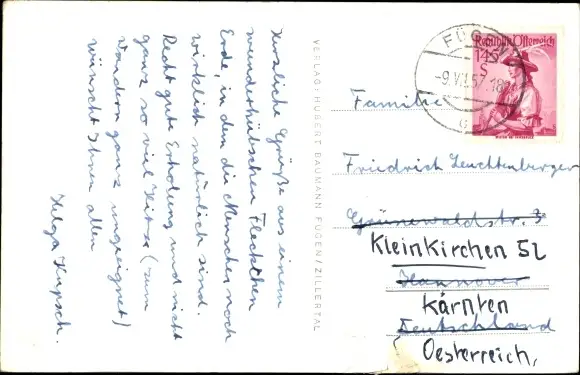 Herzliche Grüße aus einem
wunderhübschen Fleckchen
Erde, in dem die Menschen noch
wirklich natürlich sind.
Recht gute Erholung und nicht
ganz so viel Hitze (zum
Wandern ganz ungeeignet)
wünscht Ihnen allen
Helga
VERLAG: HUBERT BAUMANN FÜGEN/ZILLERTAL
FÜGEN
Republik Österreich
1.45
S
Familie
Friedrich Leuchtenberger
Grünewaldstr. 3
Kleinkirchen 52
Hannover
Kärnten
Deutschland
Oesterreich,